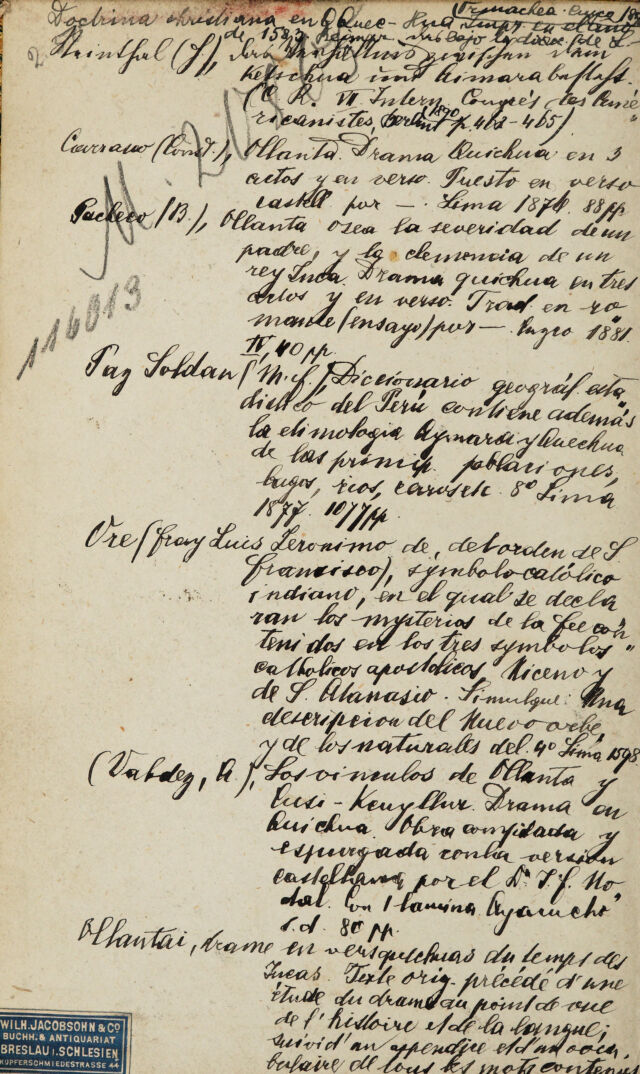 Doctrina christiana en QQuec-
de 1583
Steinthal (J), das Verhältnis zwischen dem
Ketschua und Aimara
(C. R. VII Intern. Congrés des Amé-
ricanistes, Berlin 1890 p. 462-465)
Carrasco (Const.), Ollanta. Drama Quichua en 3
actos y en verso. Puesto en verso
castell por —. Lima 1876. 88 pp
Pacheco (B.), Ollanta o sea la severidad de un
padre, y la clemencia de un
rey Inca. Drama quichua en tres
actos y en verso. Trad. en ro-
mance (ensayo) por — 1881
IV, 40 pp.
M. 20
116013
Paz Soldan (M. f.) Diccionario geográf. esta-
distico del Perú contiene además
la etimologia Aymara y Quechua
de las princip. poblaciones,
lagos, rios, cerros etc. 8º Lima
1877. 1077 pp
Ore (fray Luis Jeronimo de, del orden de S.
Francisco), symbolo católico
indiano, en el qual se decla
ran los mysterios de la fee con-
tenidos en los tres symbolos
catholicos apostolicos, Niceno y
de S. Atanasio. Simulque: Una
descripcion del Nuevo orbe,
y de los naturales del. 4º Lima 1598.
(Valdez, A.), Los vinculos de Ollanta y
Cusi-Kcuyllur. Drama en
Quichua. Obra compilada y
espurgada con la version
castellana por el Dr. J. f. No-
dal. Con 1 lamina Ayacucho
s.d. 80 pp.
Ollantai, drame en vers quechuas du temps des
Incas. Texte orig. précédé d'une
étude du drame au point de vue
de l'histoire et de la langue;
suivi d'un appendice et d'un voca-
bulaire de tous les mots contenus
WILH. JACOBSOHN & Co
BUCHH. & ANTIQUARIAT
BRESLAU I. SCHLESIEN
KUPFERSCHMIEDESTRASSE 44